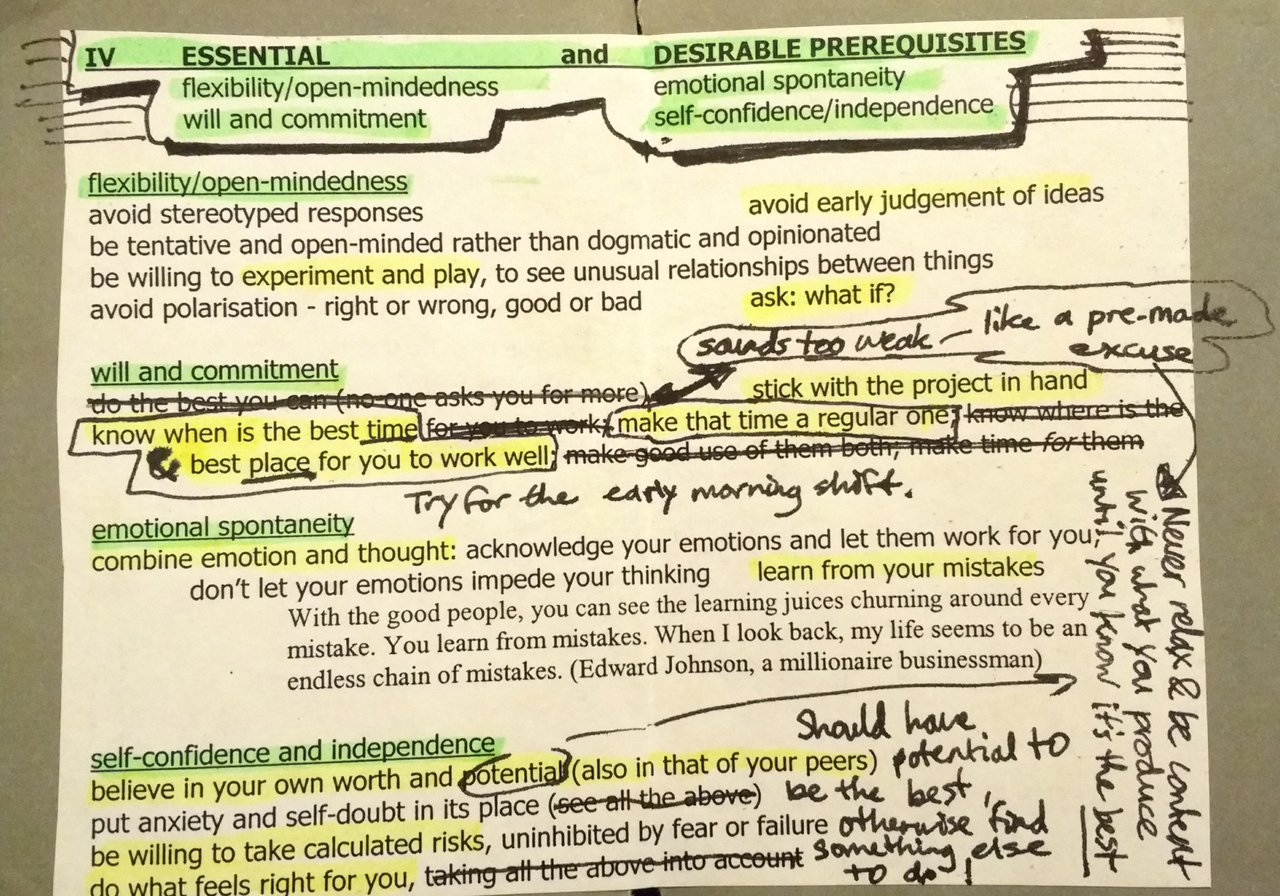 IV ESSENTIAL and DESIRABLE PREREQUISITES
flexibility/open-mindedness emotional spontaneity
will and commitment self-confidence/independence
flexibility/open-mindedness
avoid stereotyped responses avoid early judgement of ideas
be tentative and open-minded rather than dogmatic and opinionated
be willing to experiment and play, to see unusual relationships between things
avoid polarisation - right or wrong, good or bad ask: what if?
sounds too weak – like a pre-made
excuse
will and commitment
do the best you can (no one asks you for more) stick with the project in hand
know when is the best time for you to work; make that time a regular one; know where is the
& best place for you to work well; make good use of them both; make time for them
Try for the early morning shift.
Never relax & be content
with what you produce
until you know it's the best
emotional spontaneity
combine emotion and thought: acknowledge your emotions and let them work for you;
don't let your emotions impede your thinking learn from your mistakes
With the good people, you can see the learning juices churning around every
mistake. You learn from mistakes. When I look back, my life seems to be an
endless chain of mistakes. (Edward Johnson, a millionaire businessman)
self-confidence and independence
believe in your own worth and potential (also in that of your peers)
put anxiety and self-doubt in its place (see all the above)
be willing to take calculated risks, uninhibited by fear or failure
do what feels right for you, taking all the above into account
Should have
potential to
be the best,
otherwise find
something else
to do!